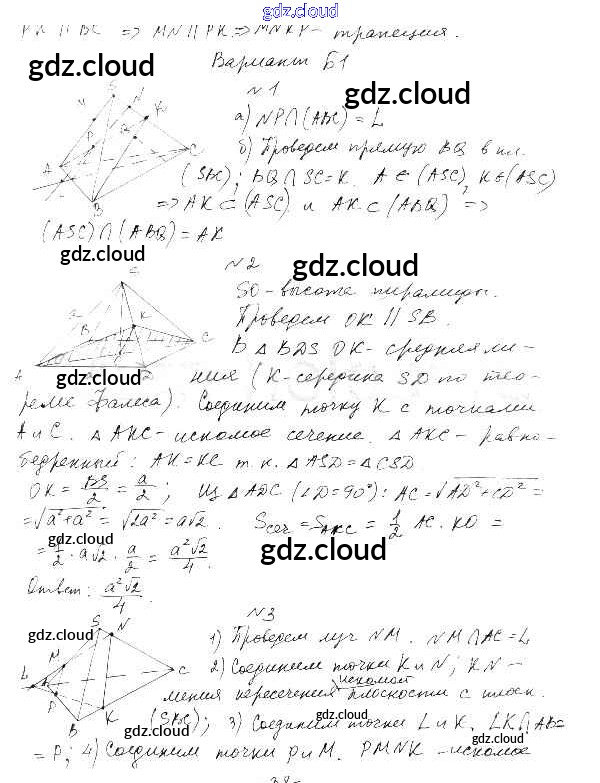 gdz.cloud
PK || BC => MN || PK => MNKP - трапеция.
gdz.cloud
Вариант Б1
gdz.cloud
№1
S
N
M
K
P
C
A
B
а) NP∩(ABC) = L
gdz.cloud
б) Проведем прямую BQ в пл.
(SBC); BQ∩SC=K. A∈(ASC), K∈(ASC)
=> AK⊂(ASC) и AK⊂(ABQ) =>
(ASC)∩(ABQ) = AK
gdz.cloud
gdz.cloud
№2
K
B
C
A
SO - высота пирамиды.
gdz.cloud
Проведем OK || SB.
В △BDS OK - средняя ли-
gdz.cloud
ния (K - середина SD по тео-
реме Фалеса). Соединим точку K с точками
gdz.cloud
A и C. △AKC - искомое сечение. △AKC - равно-
бедренный: AK=KC т.к. △ASD=△CSD.
gdz.cloud
OK = BS/2 = a/2; Из △ADC (∠D=90°): AC=√AD²+CD² =
= √a²+a² = √2a² = a√2. Sсеч = SAKC = 1/2 AC·KO =
gdz.cloud
= 1/2 · a√2 · a/2 = a²√2/4.
gdz.cloud
Ответ: a²√2/4.
№3
S
N
gdz.cloud
M
L
C
P
B
K
1) Проведем луч NM. NM∩AC=L
gdz.cloud
2) Соединим точки K и N; KN -
искомой
линия пересечения плоскости с плоск.
gdz.cloud
(SBC); 3) Соединим точки L и K. LK∩AB=
gdz.cloud
= P; 4) Соединим точки P и M. PMNK - искомое
gdz.cloud
gdz.cloud
38